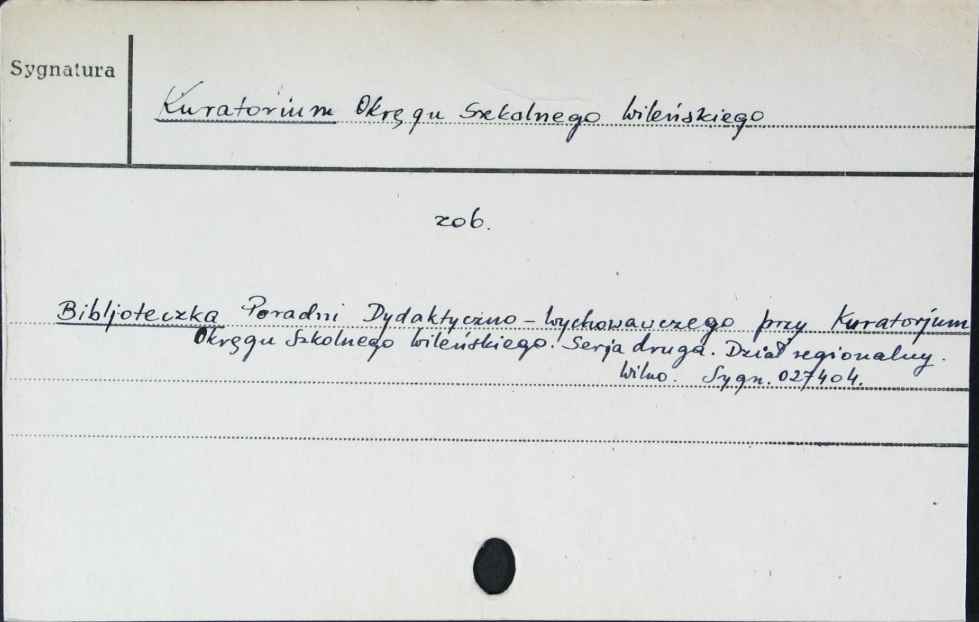 Sygnatura
Kuratorium Okręgu Szkolnego Wileńskiego
zob.
Bibljoteczka Poradni Dydaktyczno-Wychowawczego przy Kuratorjum
Okręgu Szkolnego Wileńskiego. Serja druga. Dział regionalny.
Wilno. Sygn. 027404.